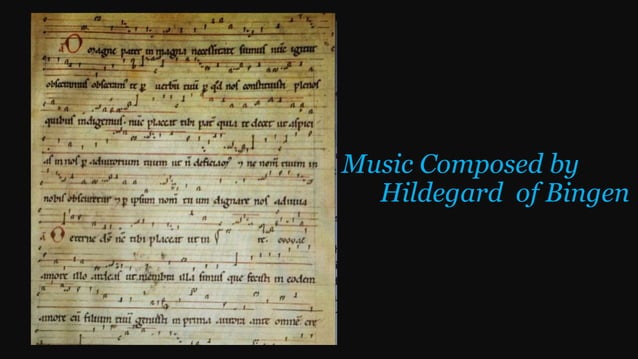 O magne pater in magna necessitate sumus nūc igitur
obsecramus obsecram te ꝑ verbū tuū ꝑ qd nos constituisti plenos
quibus indigemus. nūc placeat tibi pat̄ quia te decet ut aspici
as in nos ꝑ adiutorium tuum ut n̄ 7 ne nom̄ tuum in
nobis obscuretur 7 ꝑ ipsum nom̄ tuum dignare nos adiuva
O eterne ds̄ nc̄ tibi placeat ut in
amore illo ardeas ut membra illa simus que fecisti in eodem
amore cū filium tuū genuisti in prima aurora ante omnē cre
Music Composed by
Hildegard of Bingen